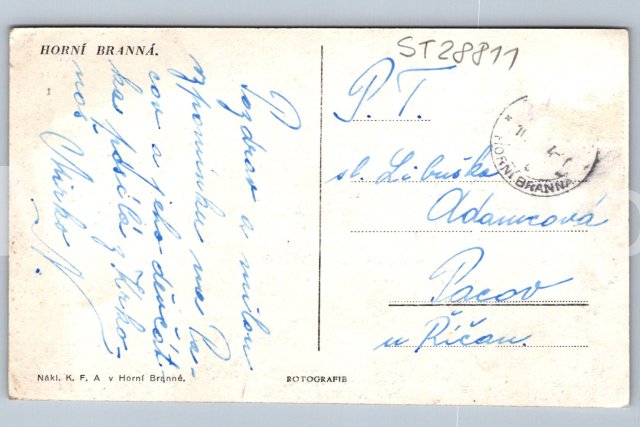 HORNÍ BRANNÁ.
ST28811
1
Pozdrav a milou
vzpomínku na Pa-
cov a jeho děvčát-
ka posílá z Krko-
noš
Mirko
P. T.
sl. Libuška
Adamcová
Pacov
u Říčan.
HORNÍ BRANNÁ
Nákl. K. F. A v Horní Branné.
ROTOGRAFIE